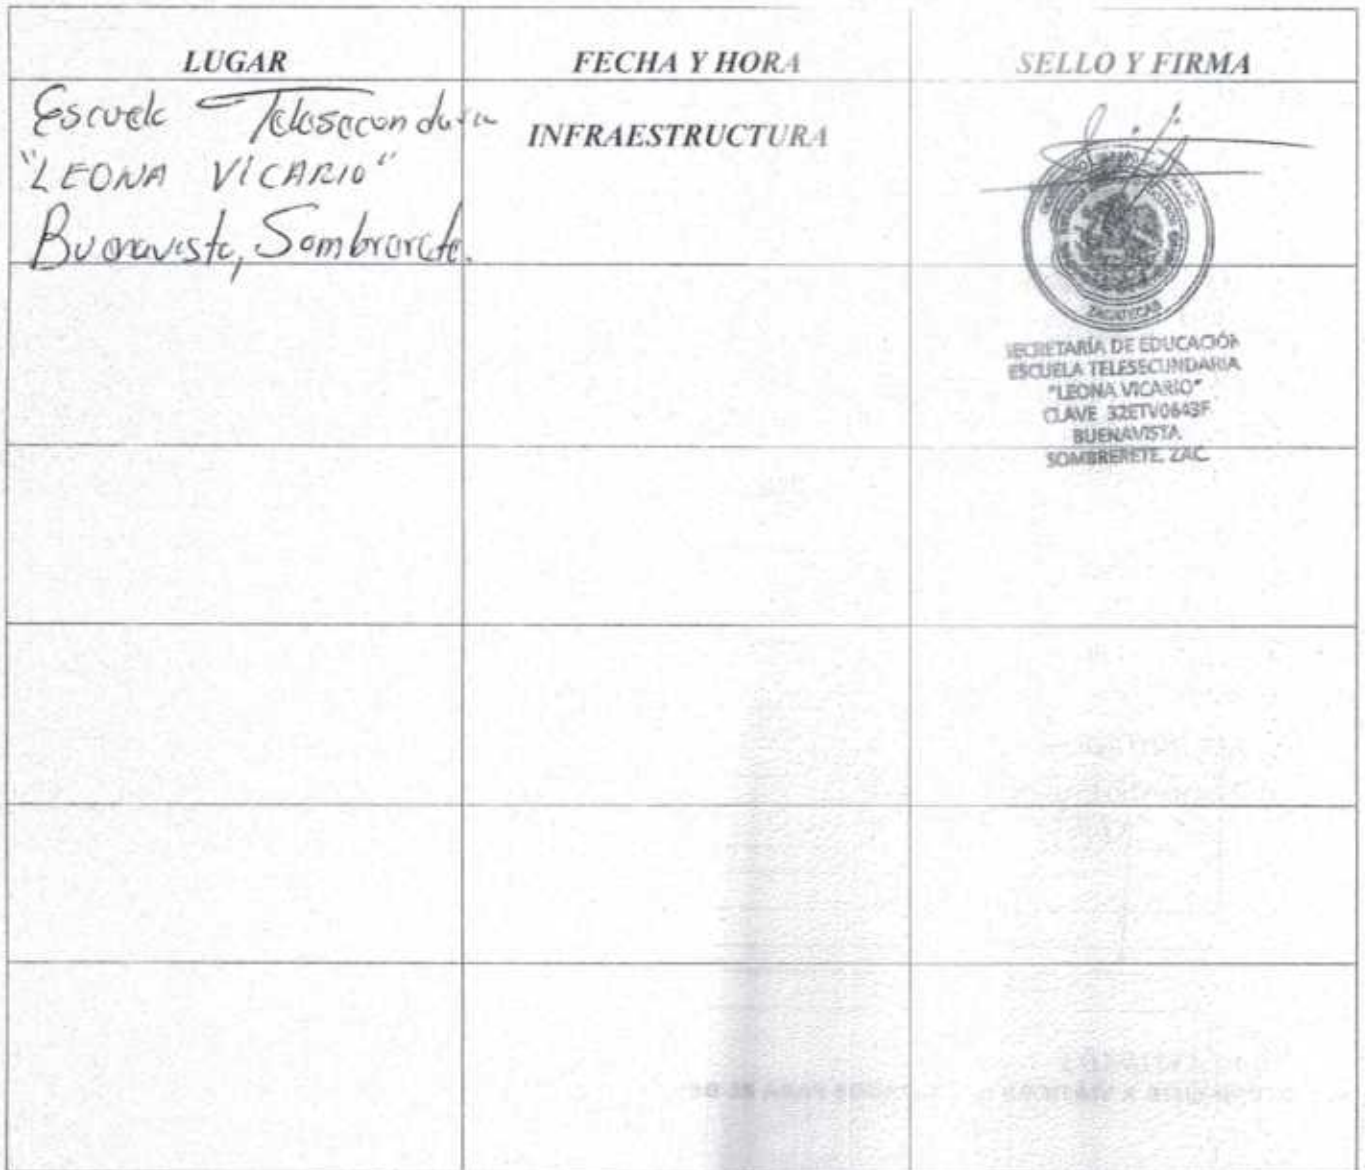 LUGAR FECHA Y HORA SELLO Y FIRMA
Escuela Telesecundaria
"LEONA VICARIO"
Buenavista, Sombrerete.
INFRAESTRUCTURA
ZACATECAS
SECRETARÍA DE EDUCACIÓN
ESCUELA TELESECUNDARIA
"LEONA VICARIO"
CLAVE 32ETV0643F
BUENAVISTA
SOMBRERETE, ZAC.